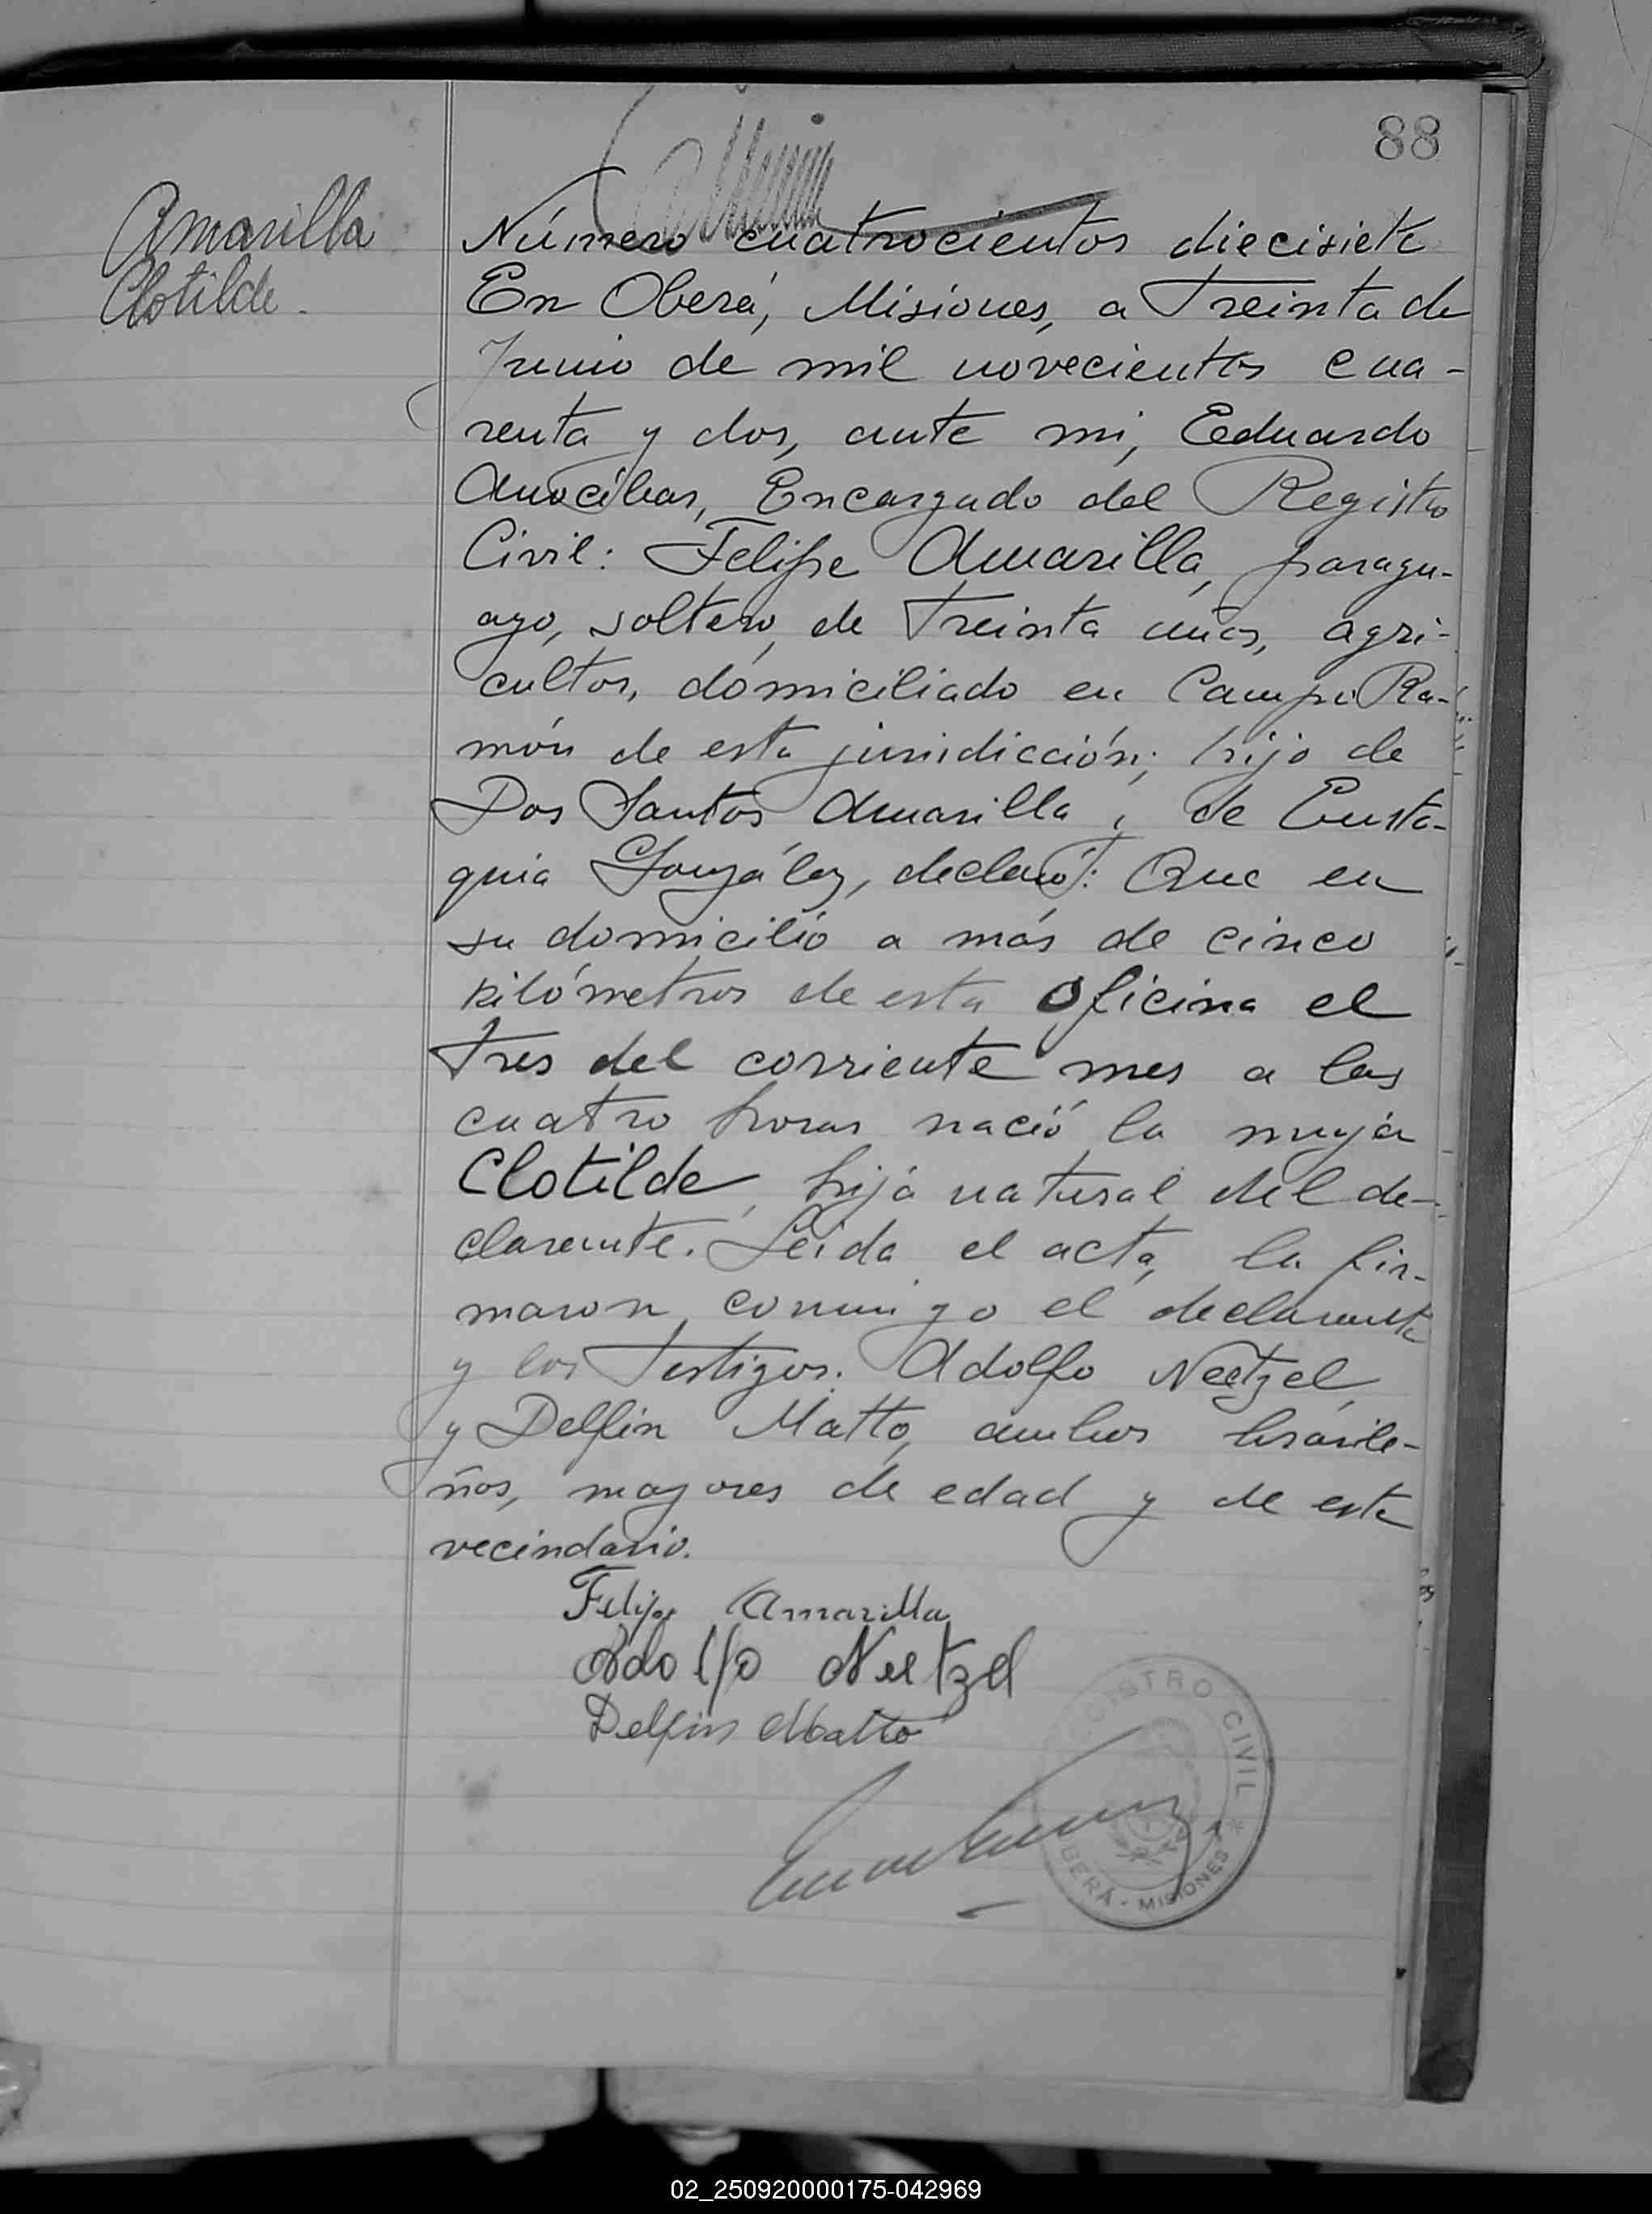 88
Amarilla
Clotilde.
Número cuatrocientos diecisiete
En Oberá, Misiones, a treinta de
Junio de mil novecientos cua-
renta y dos, ante mi, Eduardo
Anocíbar, Encargado del Registro
Civil: Felipe Amarilla, paragu-
ayo, soltero, de treinta años, agri-
cultor, domiciliado en Campo Ra-
món de esta jurisdicción; hijo de
Dos Santos Amarilla y de Eusta-
quia González, declaró: Que en
su domicilio a más de cinco
kilómetros de esta Oficina el
tres del corriente mes a las
cuatro horas nació la mujer
Clotilde, hija natural del de-
clarante. Leida el acta, la fir-
maron conmigo el declarante
y los testigos: Adolfo Neetzel
y Delfin Matto, ambos brasile-
ños, mayores de edad y de este
vecindario.
Felipe Amarilla
Adolfo Neetzel
Delfin Matto
REGISTRO CIVIL * OBERÁ - MISIONES
02_250920000175-042969